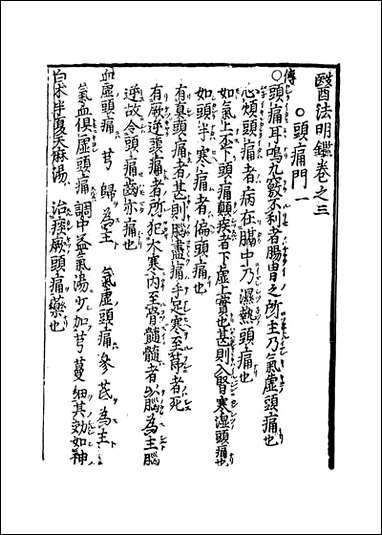 醫法明鑑卷之三
○頭痛門一
傳○頭痛耳鳴九竅不利者腸胃之所主乃氣虛頭痛也
心煩頭痛者病在膈中乃濕熱頭痛也
如氣上不下頭痛巔疾者下虛上實也甚則入腎寒濕頭痛也
如頭半寒痛者偏頭痛也
有真頭痛者甚則腦盡痛手足寒至節者死
有厥逆頭痛者所犯大寒內至骨髓髓者以腦為主腦
逆故令頭痛齒亦痛也
血虛頭痛 芎 歸為主 氣虛頭痛參芪為主
氣血俱虛頭痛調中益氣湯少加芎蔓細其効如神
白朮半夏天麻湯 治痰厥頭痛藥也